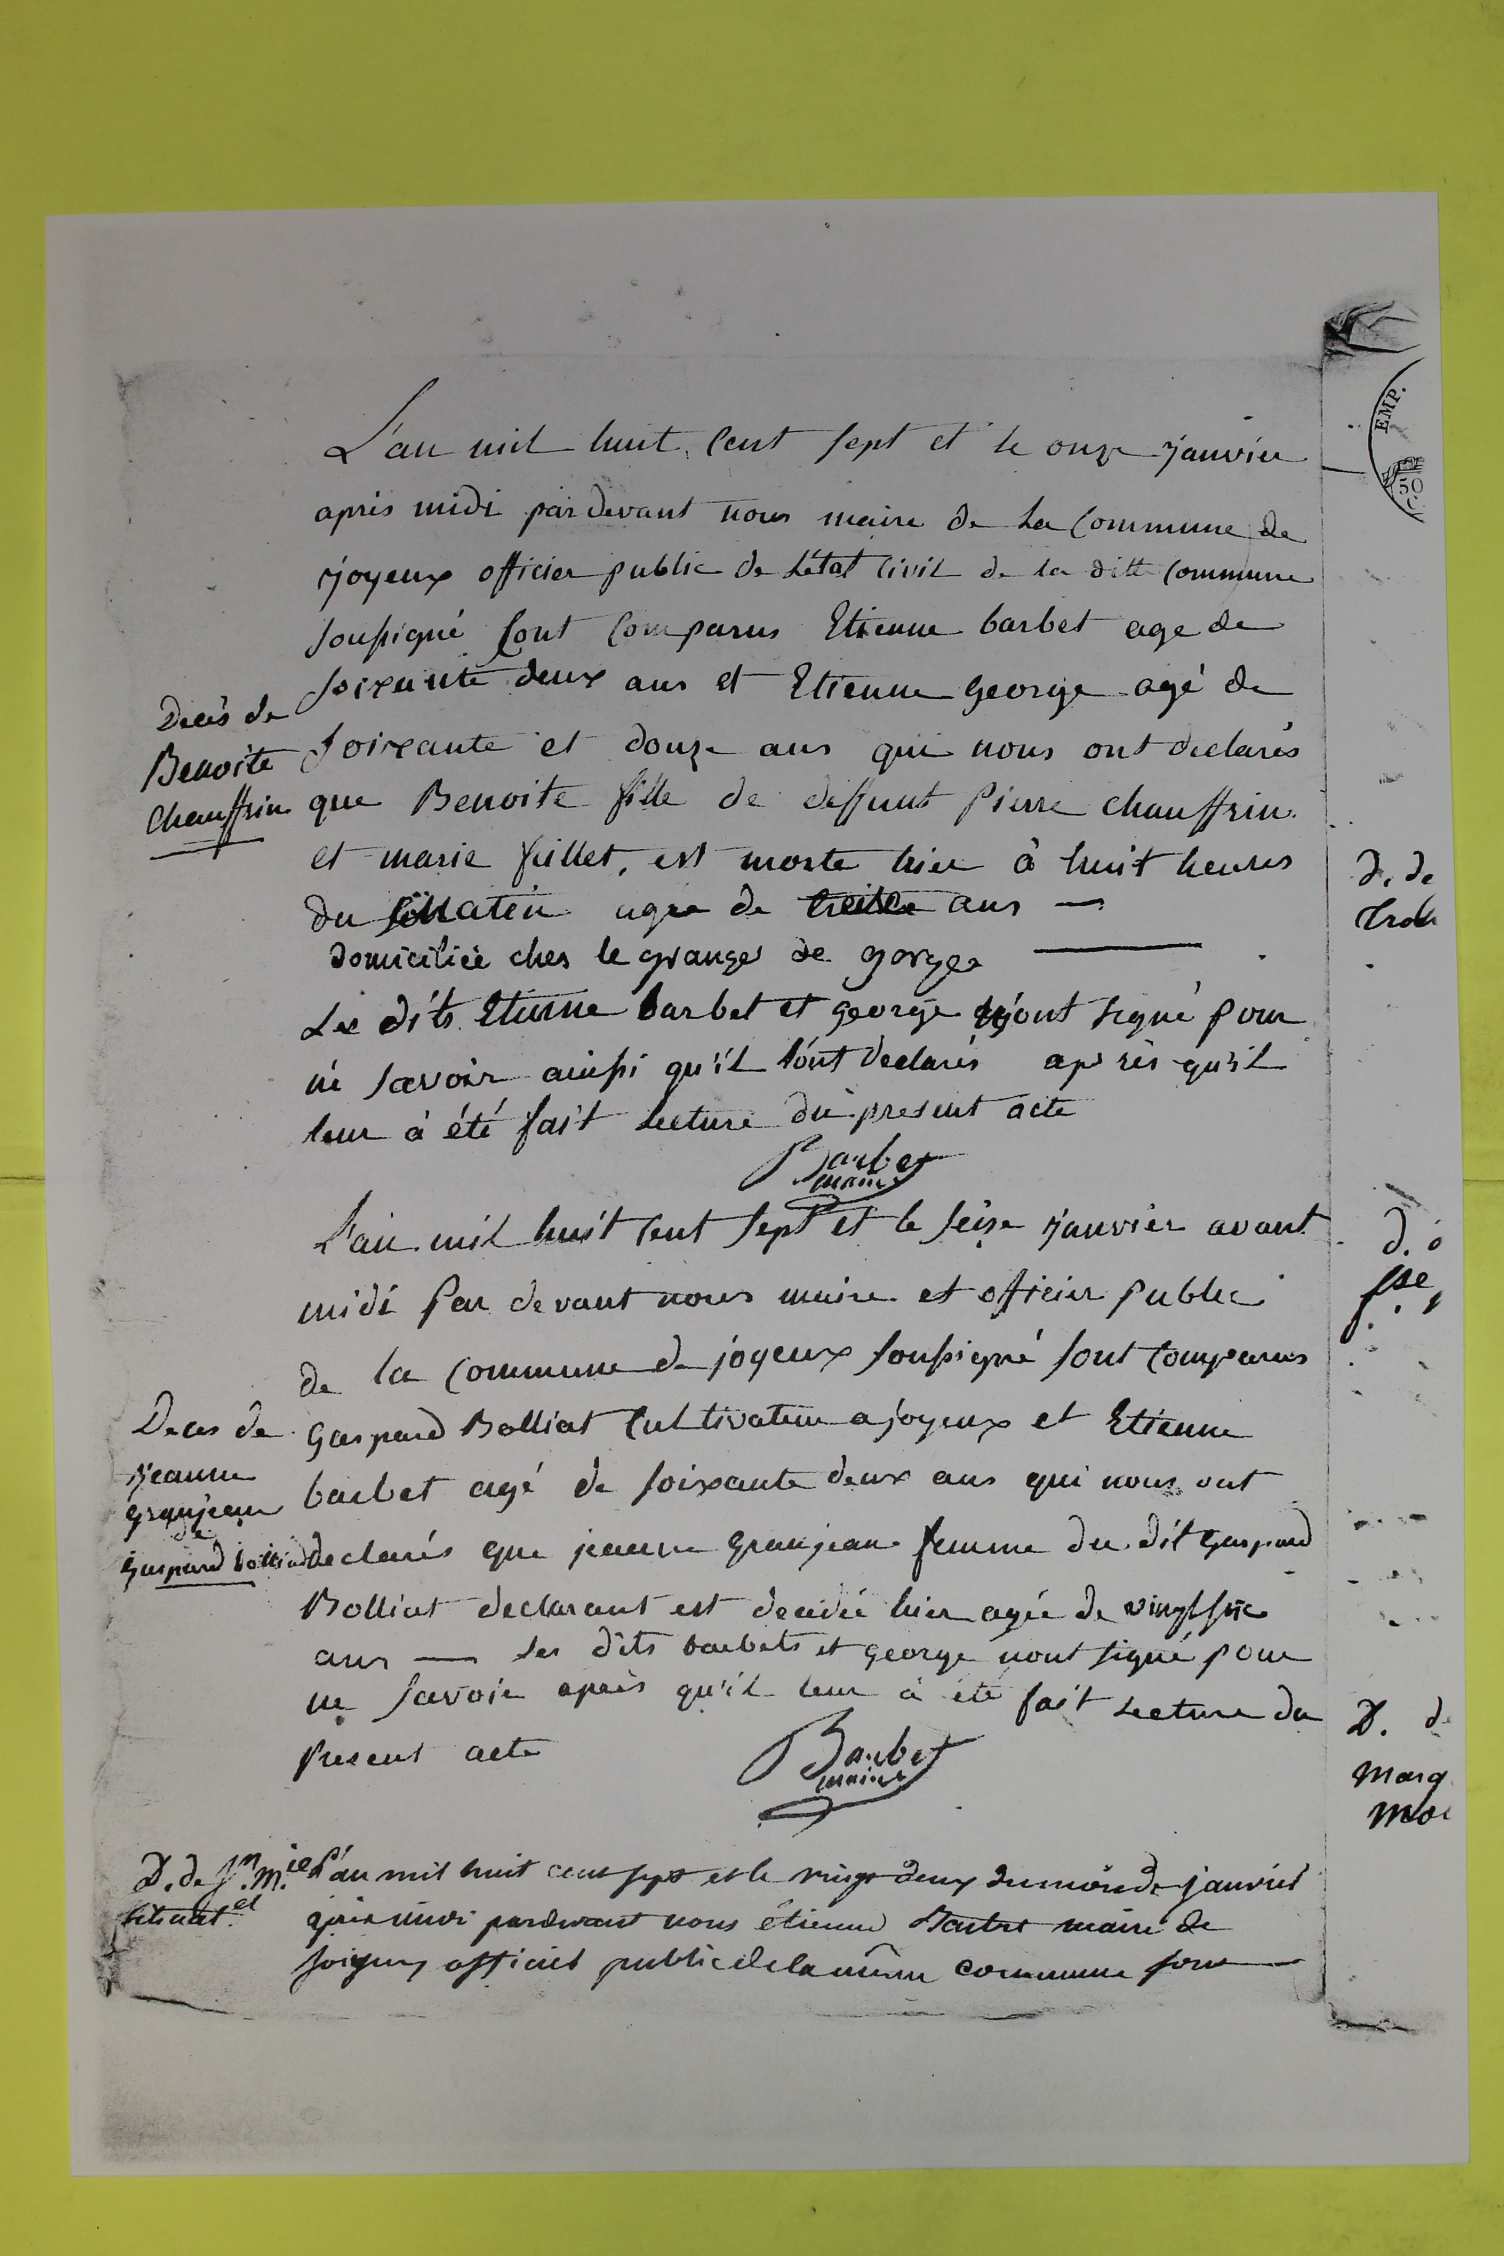 L'an mil huit cent sept et le onze janvier
après midi pardevant nous maire de La Commune de
joyeux officier public de L'état Civil de la ditte Commune
soussigné sont Comparus Etienne barbet age de
soixante deux ans et Etienne george agé de
Decès de
Benoite
Chauffrin
soixante et douze ans qui nous ont declarés
que Benoite fille de deffunt Pierre chauffrin
et marie fillet, est morte hier à huit heures
du matin agée de treize ans
domiciliée ches le grange de gorge
Les dits Etienne barbet et george n'ont signé pour
né savoir ainssi qu'il l'ont declarés après qu'il
leur à été fait Lecture du present acte
Barbet
maire
L'an mil huit cent sept et le seise janvier avant
midi Par devant nous maire et officier Public
de la Commune de joyeux soussigné sont Comparus
Decès de
jeanne
granjean
de
gaspard bolliat
gaspard Bolliat Cultivateur a joyeux et Etienne
barbet agé de soixante deux ans qui nous ont
declarés que jeanne granjean femme du dit gaspard
Bolliat declarant est decedée hier agée de vingt six
ans Les dits barbets et george n'ont signé pour
ne savoir après qu'il leur à été fait Lecture du
Present acte
Barbet
maire
D. de Jn. M.ie
L'an mil huit cent sept et le vingt deux du mois de janvier
après midi pardevant nous étienne Barbet maire de
Joigeux officier public de la même commune sont
EMP.
50
D. de
D. de
Marg